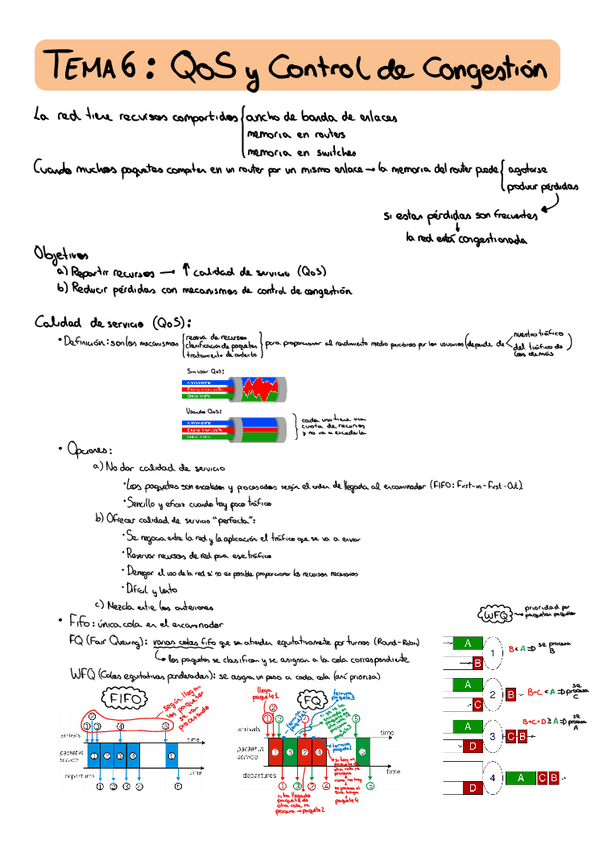 TEMA 6: QoS y Control de Congestión
La red tiene recursos compartidos ancho de banda de enlaces
memoria en routers
memoria en switches
Cuando muchos paquetes compiten en un router por un mismo enlace → la memoria del router puede agotarse
producir pérdidas
si estas pérdidas son frecuentes
la red está congestionada
Objetivos
a) Repartir recursos → ↑ calidad de servicio (QoS)
b) Reducir pérdidas con mecanismos de control de congestión
Calidad de servicio (QoS):
• Definición: son los mecanismos reserva de recursos
clasificación de paquetes
tratamiento de
para proporcionar el rendimiento medio percibido por los usuarios (depende de nuestro tráfico
del tráfico de
los demás)
Sin usar QoS:
Usando QoS:
cada uso tiene una
cuota de recursos
y no va a excederla
• Opciones:
a) No dar calidad de servicio
• Los paquetes son encolados y procesados según el orden de llegada al encaminador (FIFO: First-in-First-Out)
• Sencillo y eficaz cuando hay poco tráfico
b) Ofrecer calidad de servicio "perfecta":
• Se negocia entre la red y la aplicación el tráfico que se va a enviar
• Reservar recursos de red para ese tráfico
• Denegar el uso de la red si no es posible proporcionar los recursos necesarios
• Difícil y lento
c) Mezcla entre las anteriores
• Fifo: única cola en el encaminador
FQ (Fair Queuing): varias colas fifo que se atienden equitativamente por turnos (Round-Robin)
los paquetes se clasifican y se asignan a la cola correspondiente
WFQ (Colas equitativas ponderadas): se asigna un peso a cada cola (así prioriza)
WFQ → prioridad por
paquetes pequeños
A
B
1
B < A ⇒ se procesa
B
A
C
2
B
B+C < A ⇒ se procesa
C
A
D
3
C B
B+C+D ≥ A ⇒ se procesa
A
D
4
A C B
FIFO
según llegan
los paquetes
se van
procesando
arrivals
time
packet in
service
time
departures
1 2 3 4 5
FQ
llega
paquete 1
termina
paquete 3
arrivals
time
packet in
service
time
departures